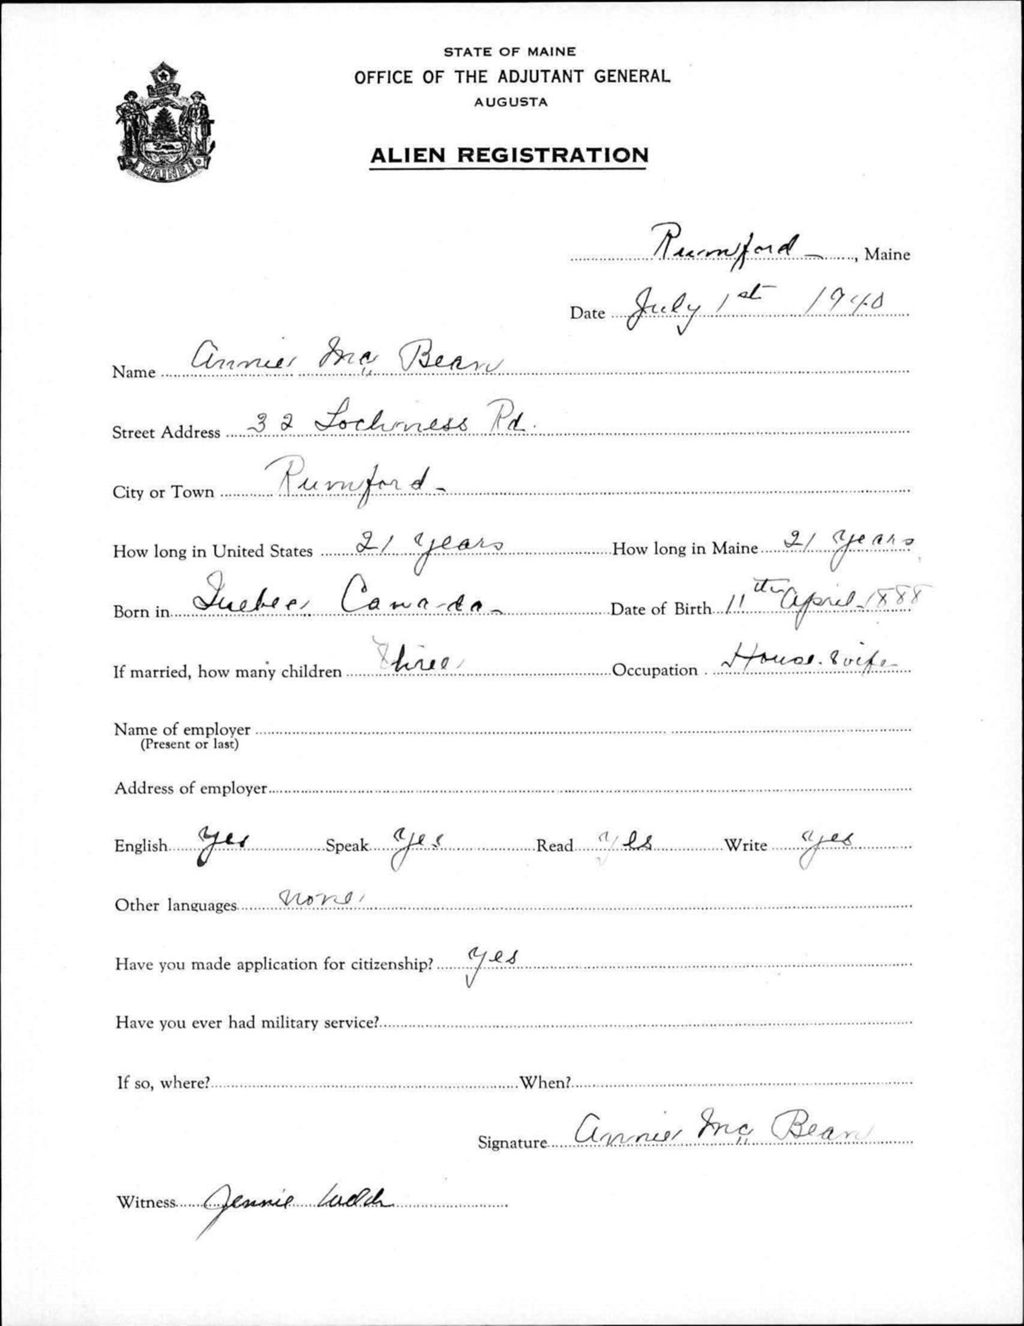 STATE OF MAINE
OFFICE OF THE ADJUTANT GENERAL
AUGUSTA
ALIEN REGISTRATION
MAINE
Rumford, Maine
Date July 1st 1940
Name Annie Mc Bean
Street Address 32 Lochness Rd.
City or Town Rumford
How long in United States 21 years How long in Maine 21 years
Born in Quebec Canada Date of Birth 11th April 1888
If married, how many children Three Occupation House-wife
Name of employer
(Present or last)
Address of employer
English yes Speak yes Read yes Write yes
Other languages none
Have you made application for citizenship? yes
Have you ever had military service?
If so, where? When?
Signature Annie Mc Bean
Witness Jennie